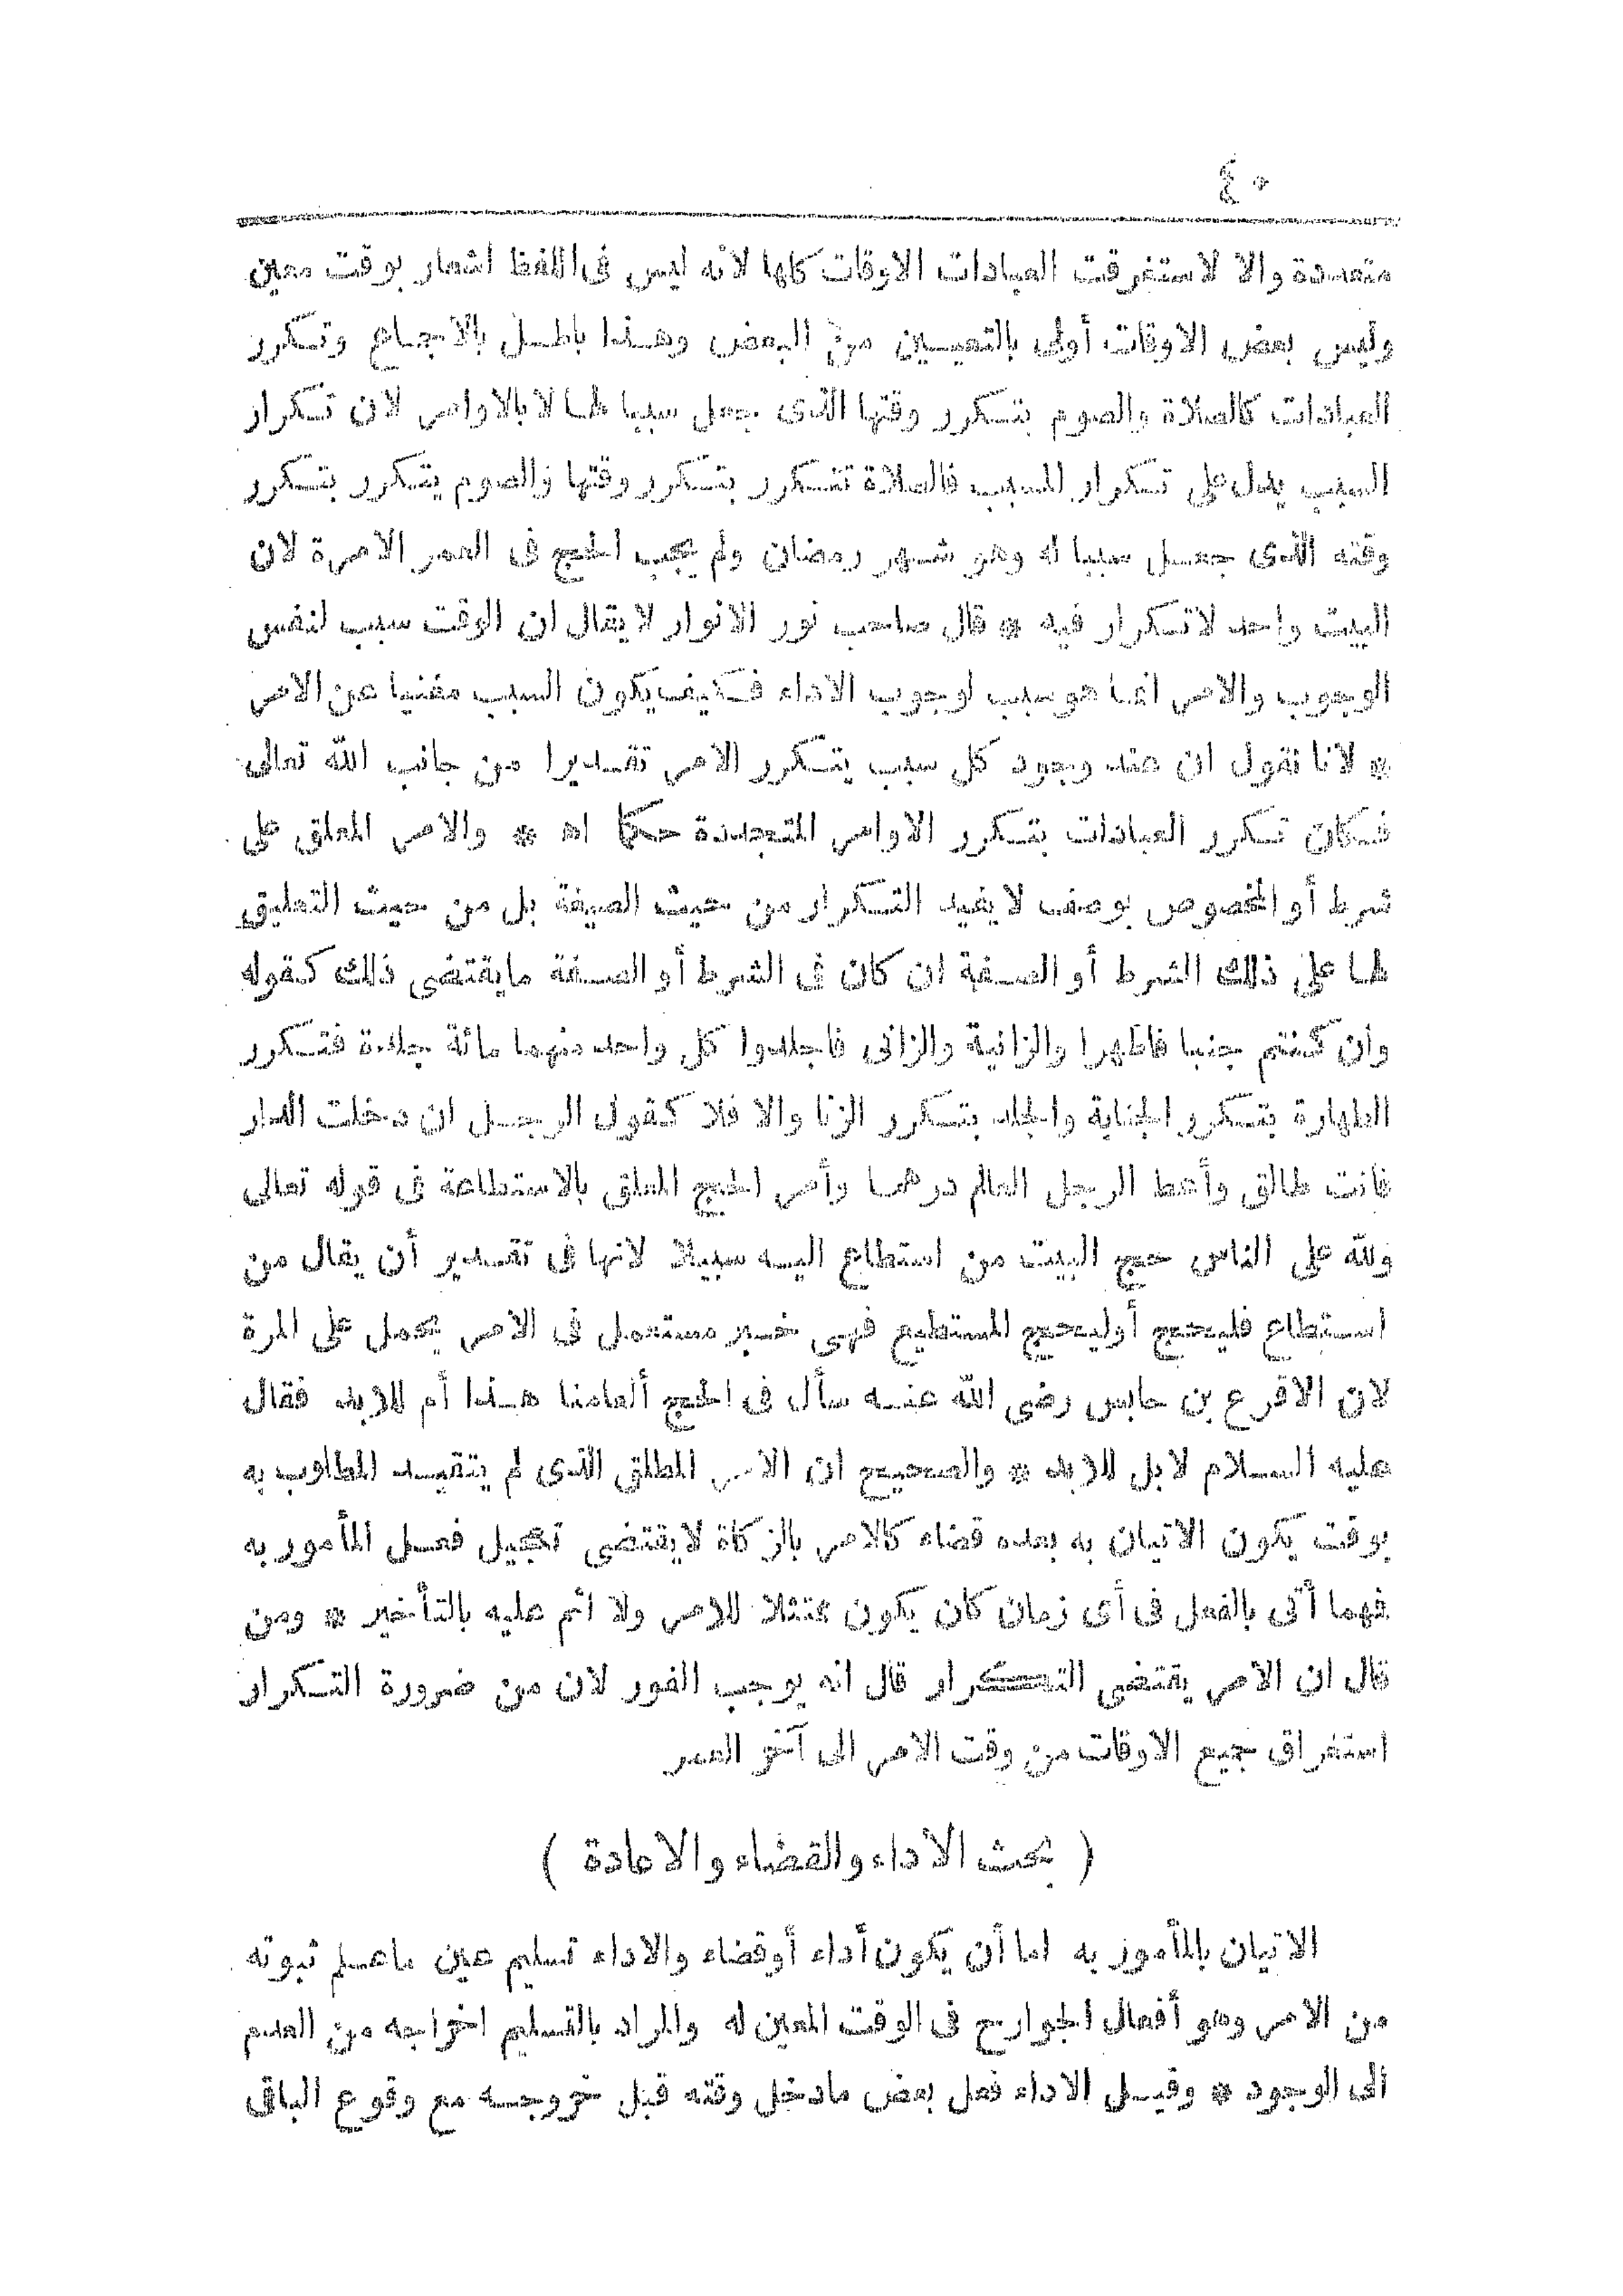 ٤٠
متعددة والا لاستغرقت العبادات الاوقات كلها لانه ليس فى اللفظ اشعار بوقت معين
وليس بعض الاوقات أولى بالتعيين من البعض وهذا باطل بالاجماع وتكرر
العبادات كالصلاة والصوم بتكرر وقتها الذى جعل سببا لها لا بالاوامر لان تكرار
السبب يدل على تكرار المسبب فالصلاة تتكرر بتكرر وقتها والصوم يتكرر بتكرر
وقته الذى جعل سببا له وهو شهر رمضان ولم يجب الحج فى العمر الا مرة لان
البيت واحد لا تكرار فيه * قال صاحب نور الانوار لا يقال ان الوقت سبب لنفس
الوجوب والامر انما هو سبب لوجوب الاداء فكيف يكون السبب مغنيا عن الامر
* لانا نقول ان عند وجود كل سبب يتكرر الامر تقديرا من جانب الله تعالى
فكان تكرر العبادات بتكرر الاوامر المتجددة حكما اه * والامر المعلق على
شرط أو المخصوص بوصف لا يفيد التكرار من حيث الصيغة بل من حيث التعليق
لها على ذلك الشرط أو الصفة ان كان فى الشرط أو الصفة ما يقتضى ذلك كقوله
وان كنتم جنبا فاطهرا والزانية والزانى فاجلدوا كل واحد منهما مائة جلدة فتكرر
الطهارة بتكرر الجنابة والجلد بتكرر الزنا والا فلا كقول الرجل ان دخلت الدار
فانت طالق وأعط الرجل العالم درهما وأمر الحج المعلق بالاستطاعة فى قوله تعالى
ولله على الناس حج البيت من استطاع اليه سبيلا لانها فى تقدير أن يقال من
استطاع فليحج أو ليحج المستطيع فهى خبر مستعمل فى الامر يحمل على المرة
لان الاقرع بن حابس رضى الله عنه سأل فى الحج ألعامنا هذا أم للابد فقال
عليه السلام لا بل للابد * والصحيح ان الامر المطلق الذى لم يتقيد المطلوب به
بوقت يكون الاتيان به بعده قضاء كالامر بالزكاة لا يقتضى تعجيل فعل المأمور به
فهما أتى بالفعل فى أى زمان كان يكون ممتثلا للامر ولا اثم عليه بالتأخير * ومن
قال ان الامر يقتضى التكرار قال انه يوجب الفور لان من ضرورة التكرار
استغراق جميع الاوقات من وقت الامر الى آخر العمر
( بحث الاداء والقضاء والاعادة )
الاتيان بالمأمور به اما أن يكون أداء أو قضاء والاداء تسليم عين ما علم ثبوته
من الامر وهو أفعال الجوارح فى الوقت المعين له والمراد بالتسليم اخراجه من العدم
الى الوجود * وقيل الاداء فعل بعض ما دخل وقته قبل خروجه مع وقوع الباقى